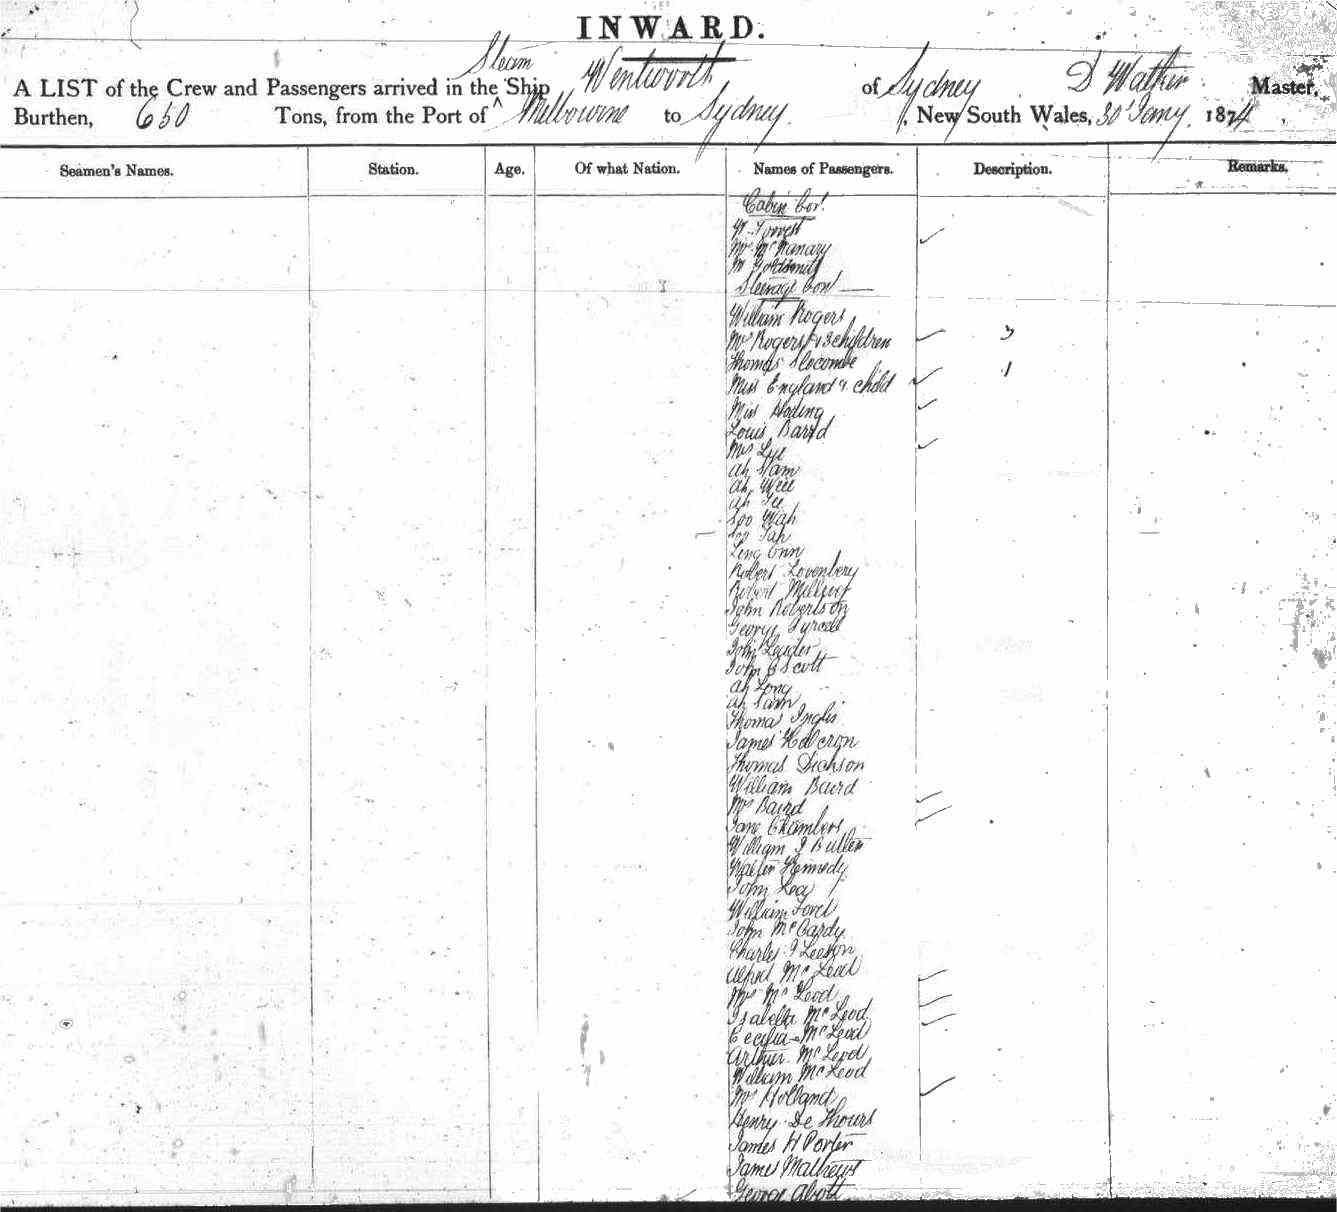 INWARD.
A LIST of the Crew and Passengers arrived in the ^ Steam Ship Wentworth of Sydney D Walker Master,
Burthen, 650 Tons, from the Port of Melbourne to Sydney, New South Wales, 30 Jany. 1874
Seamen's Names. Station. Age. Of what Nation. Names of Passengers. Description. Remarks.
Cabin
Forrest
Mrs
Mr Goldsmith
Steerage
William Rogers
Mrs Rogers & 3 children 3
Thomas Slocombe
Miss England & child 1
Miss
Louis Barrd
Mrs Lye
Ah
Ah
Ah
Soo Wah
Soo
Ling
Robert Lovenbery
Robert
John Robertson
George
John Leader
John C Scott
Ah Long
Ah Sam
Thomas Inglis
James
Thomas Dickson
William Baird
Mrs Baird
Jane Chambers
William J Bullen
Walter Kennedy
John Lea
William
John McCardy
Charles J Leeson
Alfred McLeod
Mrs McLeod
Isabella McLeod
Cecilia McLeod
Arthur McLeod
William McLeod
Mrs Holland
Henry De
James H Porter
James Mathews
George Abott